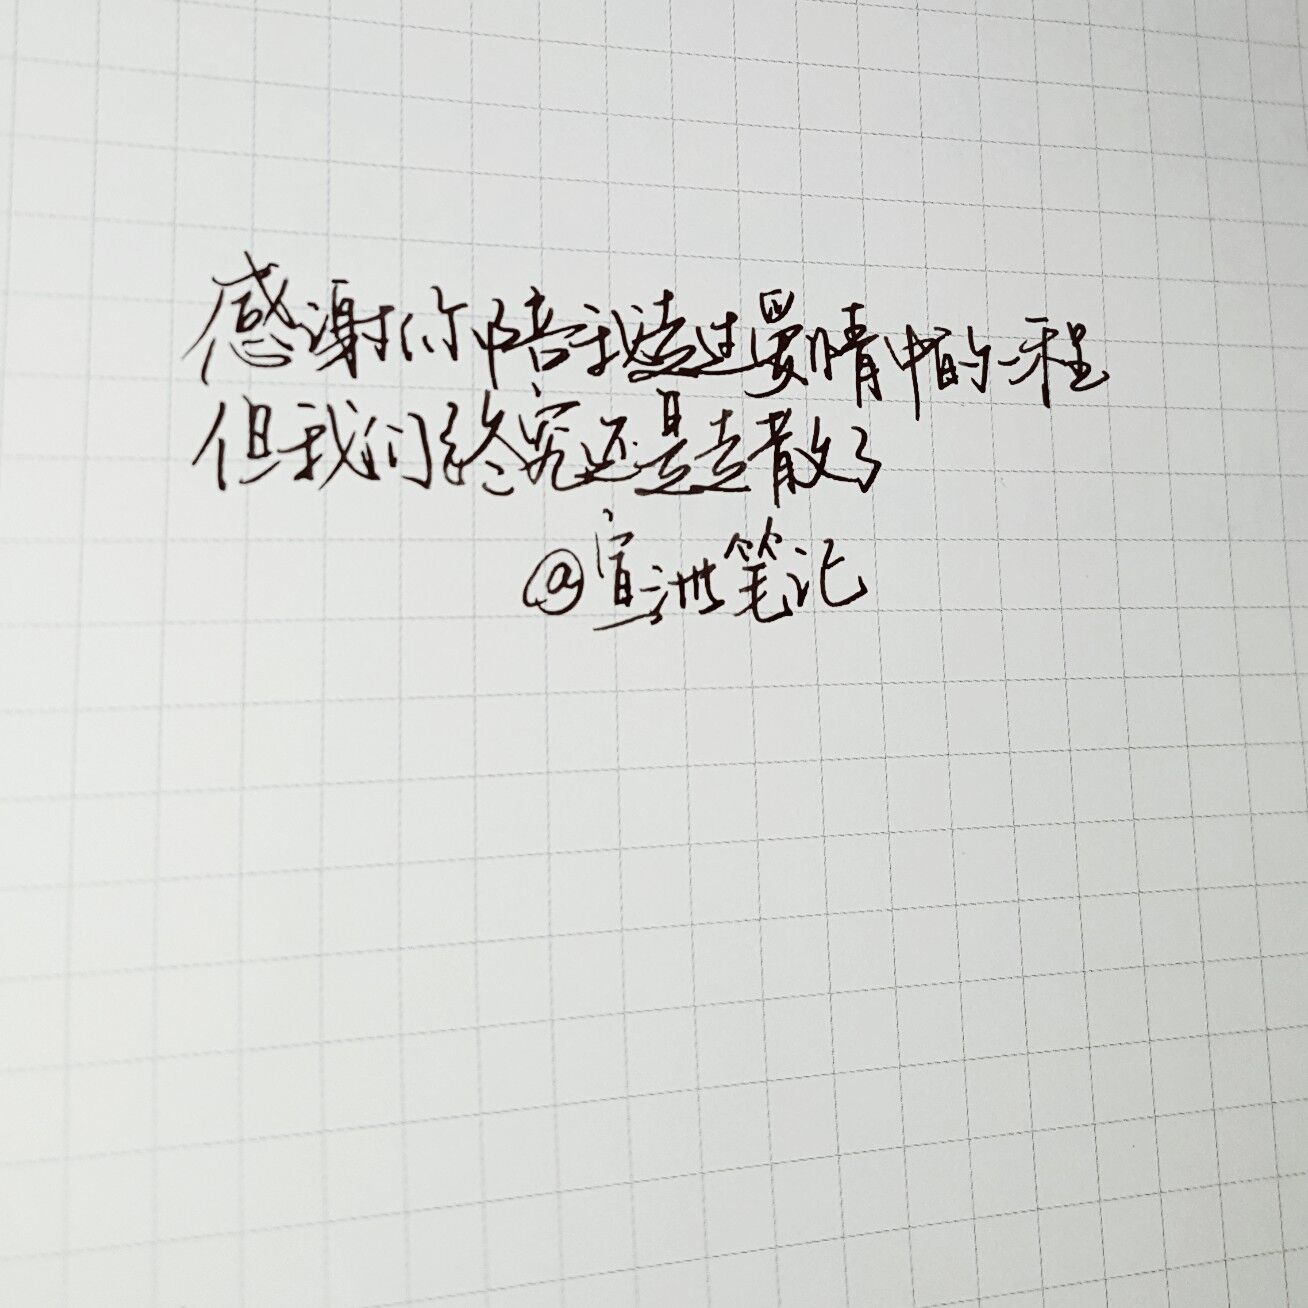 感谢你陪我走过爱情中的一程
但我们终究还是走散了
@宜洲笔记